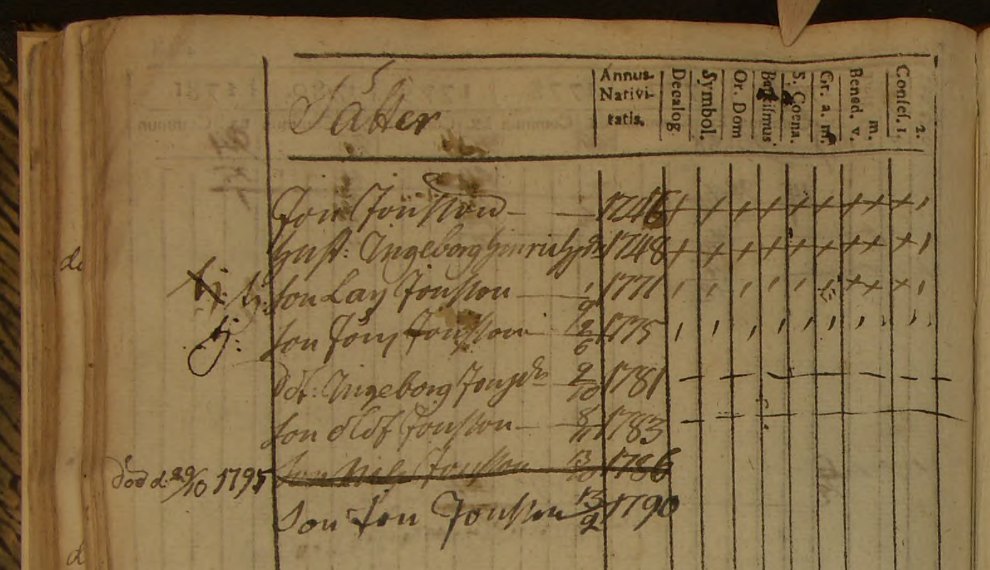 Sätter
Annus Nativitatis. Decalog Symbol. Or. Dom Baptismus S. Coena. Gr. a. m. Bened. v. m. Confes. 1. 2.
Jon Jonsson 1746 + + + + + + + + +
Hust: Ingeborg Hinrichsd: 1748 + + + + + + + + +
Son Lars Jonsson 1771
Son Jöns Jonsson 1775
dot: Ingeborg Jonsdr 9/10 1781
Son Olof Jonsson 1783
död d: 29/10 1795 Son Nils Jonsson 13/10 1786
Son Jon Jonsson 13/2 1790